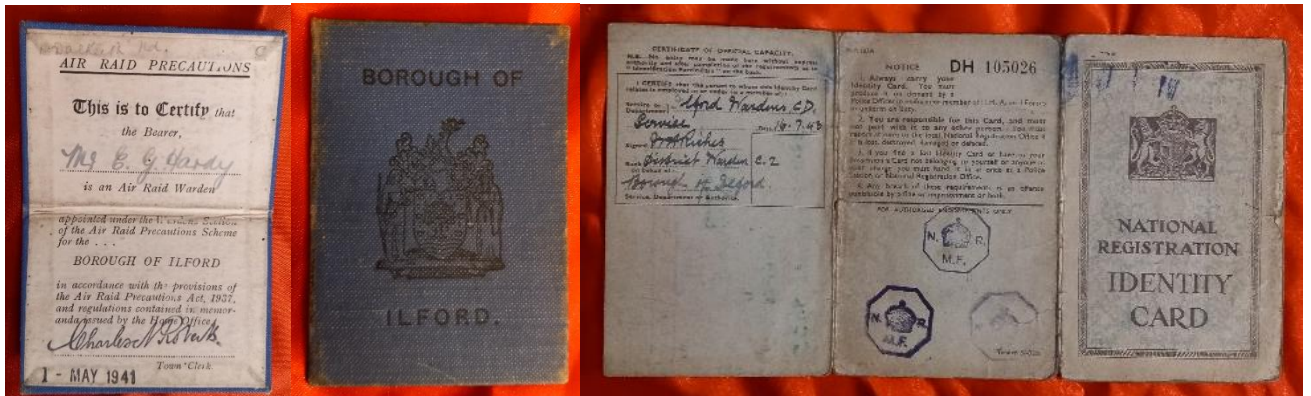 AIR RAID PRECAUTIONS
This is to Certify that
the Bearer,
Mr E. G. Hardy
is an Air Raid Warden
appointed under the Wardens Section
of the Air Raid Precautions Scheme
for the . . .
BOROUGH OF ILFORD
in accordance with the provisions of
the Air Raid Precautions Act, 1937,
and regulations contained in memor-
anda issued by the Home Office.
Charles
Town Clerk.
1 - MAY 1941
BOROUGH OF
ILFORD.
CERTIFICATE OF OFFICIAL CAPACITY.
N.B. No entry may be made here without express
authority and after completion of the requirements as to
on the back.
I CERTIFY that the person to whom this Identity Card
relates is employed in or under or a member of :
Service or
Department
Ilford Wardens C.D.
Service
Date 16.7.43
Signed
Riches
Rank District Warden C.2
on behalf of
Borough of Ilford.
Service, Department or Authority.
NOTICE
DH 105026
1. Always carry your
Identity Card. You must
produce it on demand by a
Police Officer in uniform or member of H.M. Armed Forces
in uniform on duty.
2. You are responsible for this Card, and must
not part with it to any other person. You must
report at once to the local National Registration Office if
it is lost, destroyed, damaged or defaced.
3. If you find a lost Identity Card or have in your
possession a Card not belonging to yourself or anyone in
your charge you must hand it in at once at a Police
Station or National Registration Office.
4. Any breach of these requirements is an offence
punishable by a fine or imprisonment or both.
FOR AUTHORISED ENDORSEMENTS ONLY
N. R.
M.F.
N. R.
M.F.
NATIONAL
REGISTRATION
IDENTITY
CARD